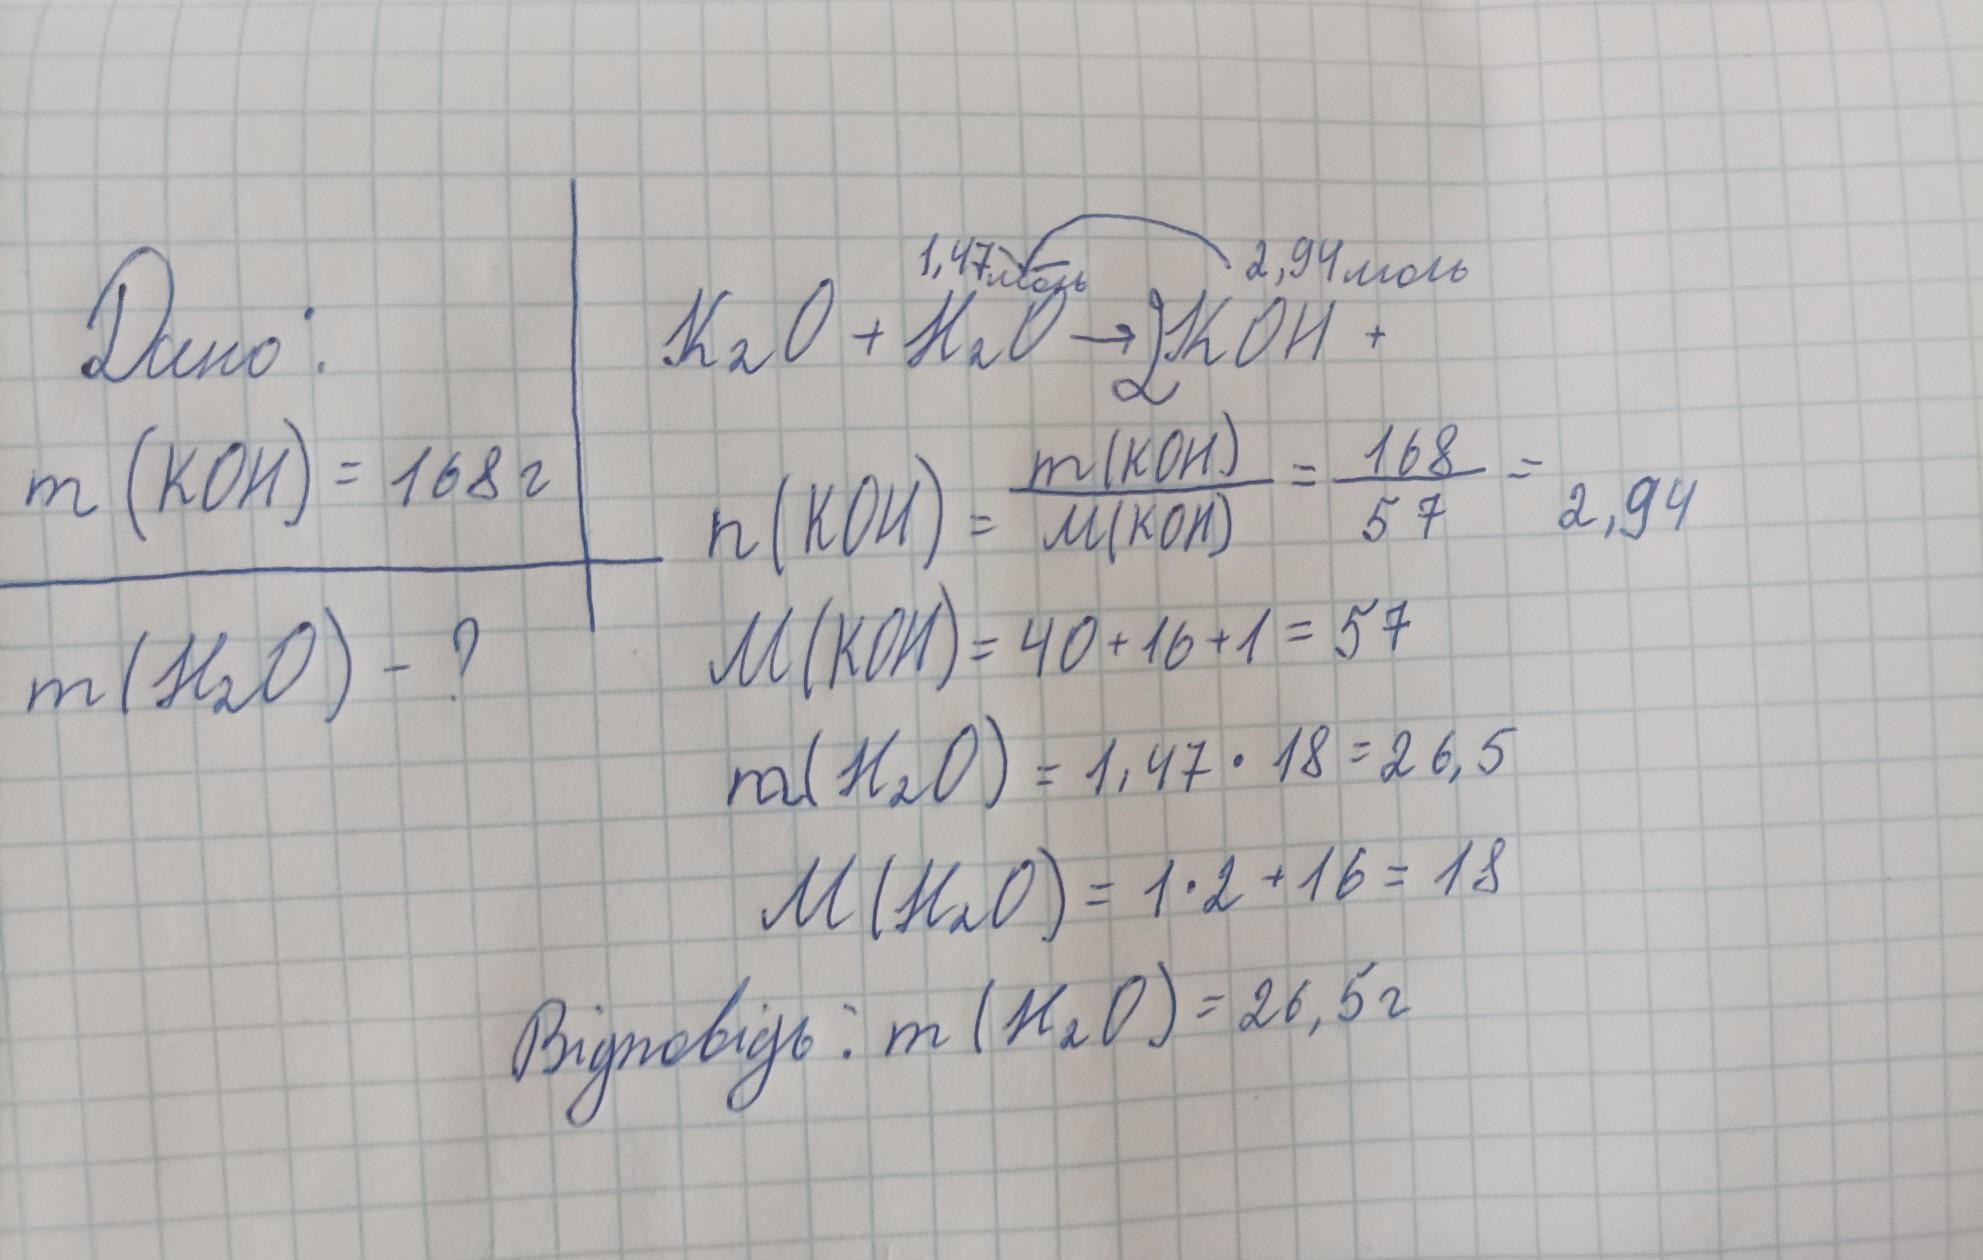 Дано:
m (KOH) = 168 г
m (H₂O) - ?
1,47 моль 2,94 моль
K₂O + H₂O → 2KOH +
n(KOH) = m(KOH) / M(KOH) = 168 / 57 = 2,94
M(KOH) = 40 + 16 + 1 = 57
m(H₂O) = 1,47 · 18 = 26,5
M(H₂O) = 1 · 2 + 16 = 18
Відповідь: m (H₂O) = 26,5 г